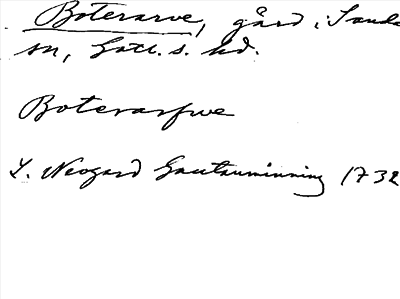 Boterarve, gård, i Sanda
sn, Gotl. s. hd.
Boterarfwe
L. Neogard Gautauminning 1732